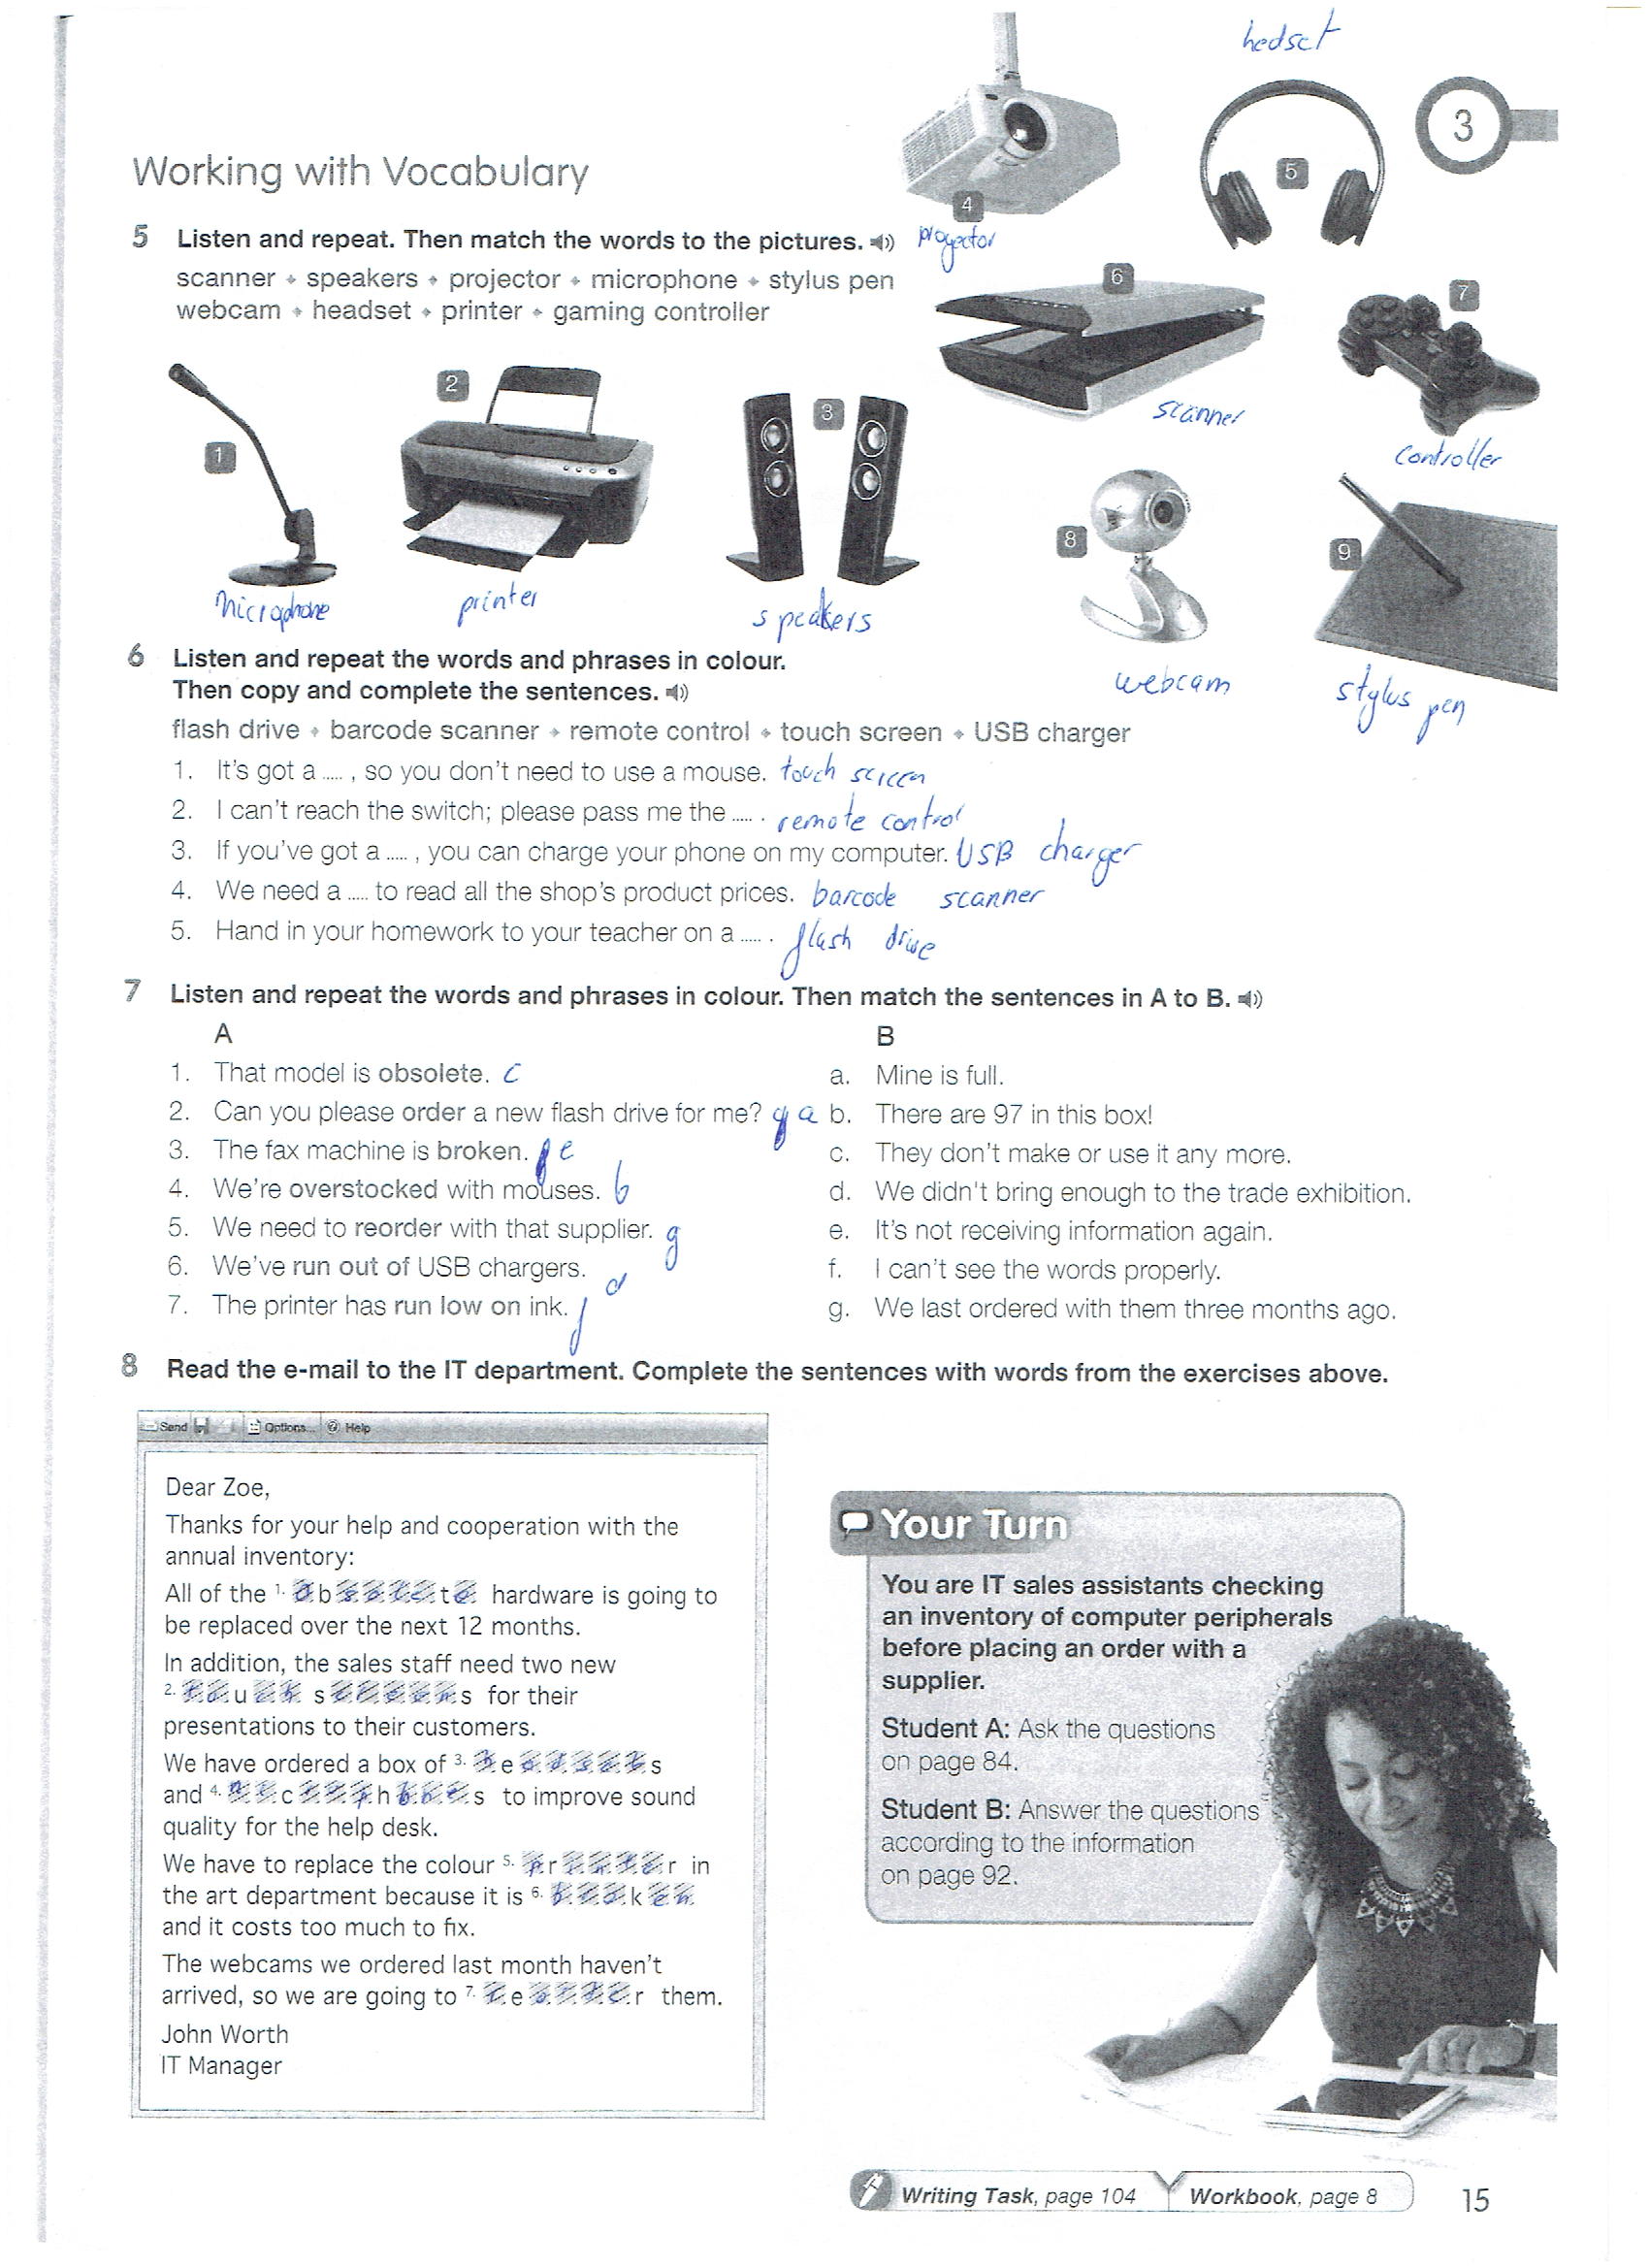 hedset
3
Working with Vocabulary
4
5
proyector
5 Listen and repeat. Then match the words to the pictures.
scanner • speakers • projector • microphone • stylus pen
webcam • headset • printer • gaming controller
6
7
scanner
controller
1
2
3
8
9
microphone
printer
speakers
webcam
stylus pen
6 Listen and repeat the words and phrases in colour.
Then copy and complete the sentences.
flash drive • barcode scanner • remote control • touch screen • USB charger
1. It's got a ..... , so you don't need to use a mouse. touch screen
2. I can't reach the switch; please pass me the ..... . remote control
3. If you've got a ..... , you can charge your phone on my computer. USB charger
4. We need a ..... to read all the shop's product prices. barcode scanner
5. Hand in your homework to your teacher on a ..... . flash drive
7 Listen and repeat the words and phrases in colour. Then match the sentences in A to B.
A
1. That model is obsolete. c
2. Can you please order a new flash drive for me? a
3. The fax machine is broken. e
4. We're overstocked with mouses. b
5. We need to reorder with that supplier. g
6. We've run out of USB chargers. d
7. The printer has run low on ink. f
B
a. Mine is full.
b. There are 97 in this box!
c. They don't make or use it any more.
d. We didn't bring enough to the trade exhibition.
e. It's not receiving information again.
f. I can't see the words properly.
g. We last ordered with them three months ago.
8 Read the e-mail to the IT department. Complete the sentences with words from the exercises above.
Send Options... Help
Dear Zoe,
Thanks for your help and cooperation with the
annual inventory:
All of the 1. obsolete hardware is going to
be replaced over the next 12 months.
In addition, the sales staff need two new
2. touch screens for their
presentations to their customers.
We have ordered a box of 3. headsets
and 4. microphones to improve sound
quality for the help desk.
We have to replace the colour 5. printer in
the art department because it is 6. broken
and it costs too much to fix.
The webcams we ordered last month haven't
arrived, so we are going to 7. reorder them.
John Worth
IT Manager
Your Turn
You are IT sales assistants checking
an inventory of computer peripherals
before placing an order with a
supplier.
Student A: Ask the questions
on page 84.
Student B: Answer the questions
according to the information
on page 92.
Writing Task, page 104 Workbook, page 8 15